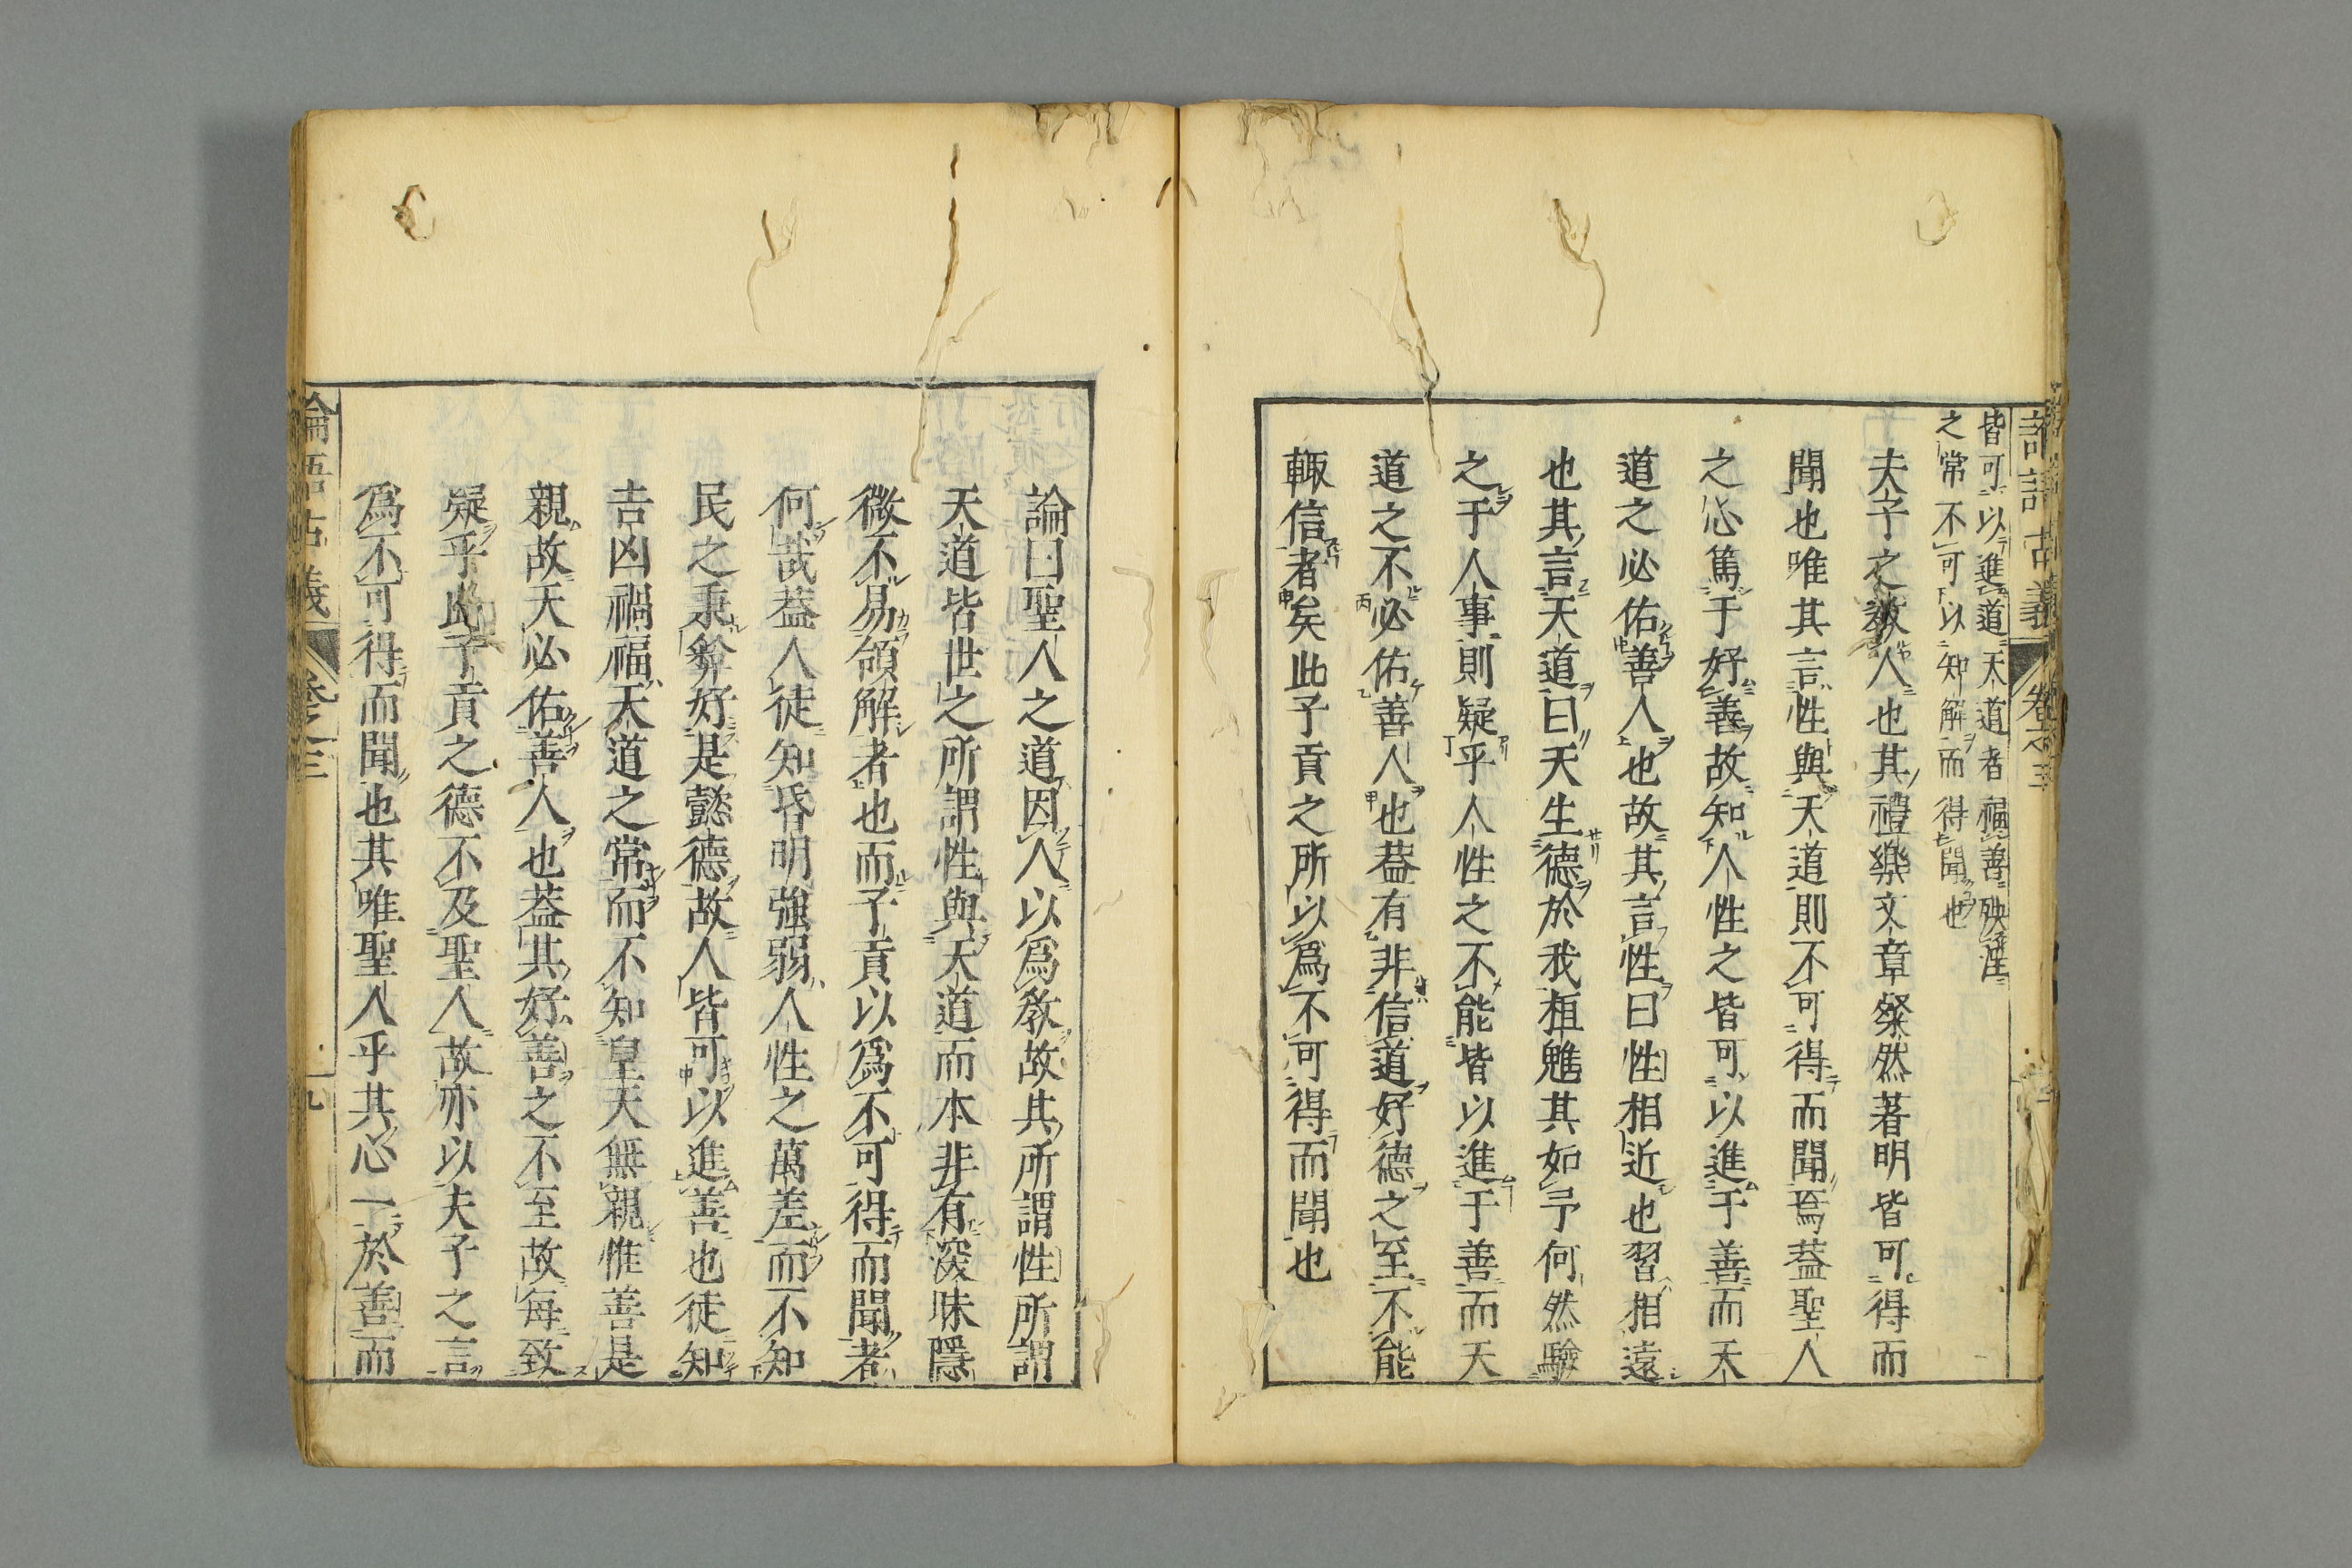 論語古義 卷之三
皆可以進道天道者福善殃淫
之常不可以知解而得聞也
夫子之教人也其禮樂文章粲然著明皆可得而
聞也唯其言性與天道則不可得而聞焉葢聖人
之心篤于好善故知人性之皆可以進于善而天
道之必佑善人也故其言性曰性相近也習相遠
也其言天道曰天生德於我桓魋其如予何然驗
之于人事則疑乎人性之不能皆以進于善而天
道之不必佑善人也葢有非信道好德之至不能
輙信者矣此子貢之所以爲不可得而聞也
論曰聖人之道因人以爲教故其所謂性所謂
天道皆世之所謂性與天道而本非有深昧隱
微不易領解者也而子貢以爲不可得而聞者
何哉葢人徒知昏明強弱人性之萬差而不知
民之秉彜好是懿德故人皆可以進善也徒知
吉凶禍福天道之常而不知皇天無親惟善是
親故天必佑善人也葢其好善之不至故每致
疑乎此子貢之德不及聖人故亦以夫子之言
爲不可得而聞也其唯聖人乎其心一於善而
論語古義 卷之三 九